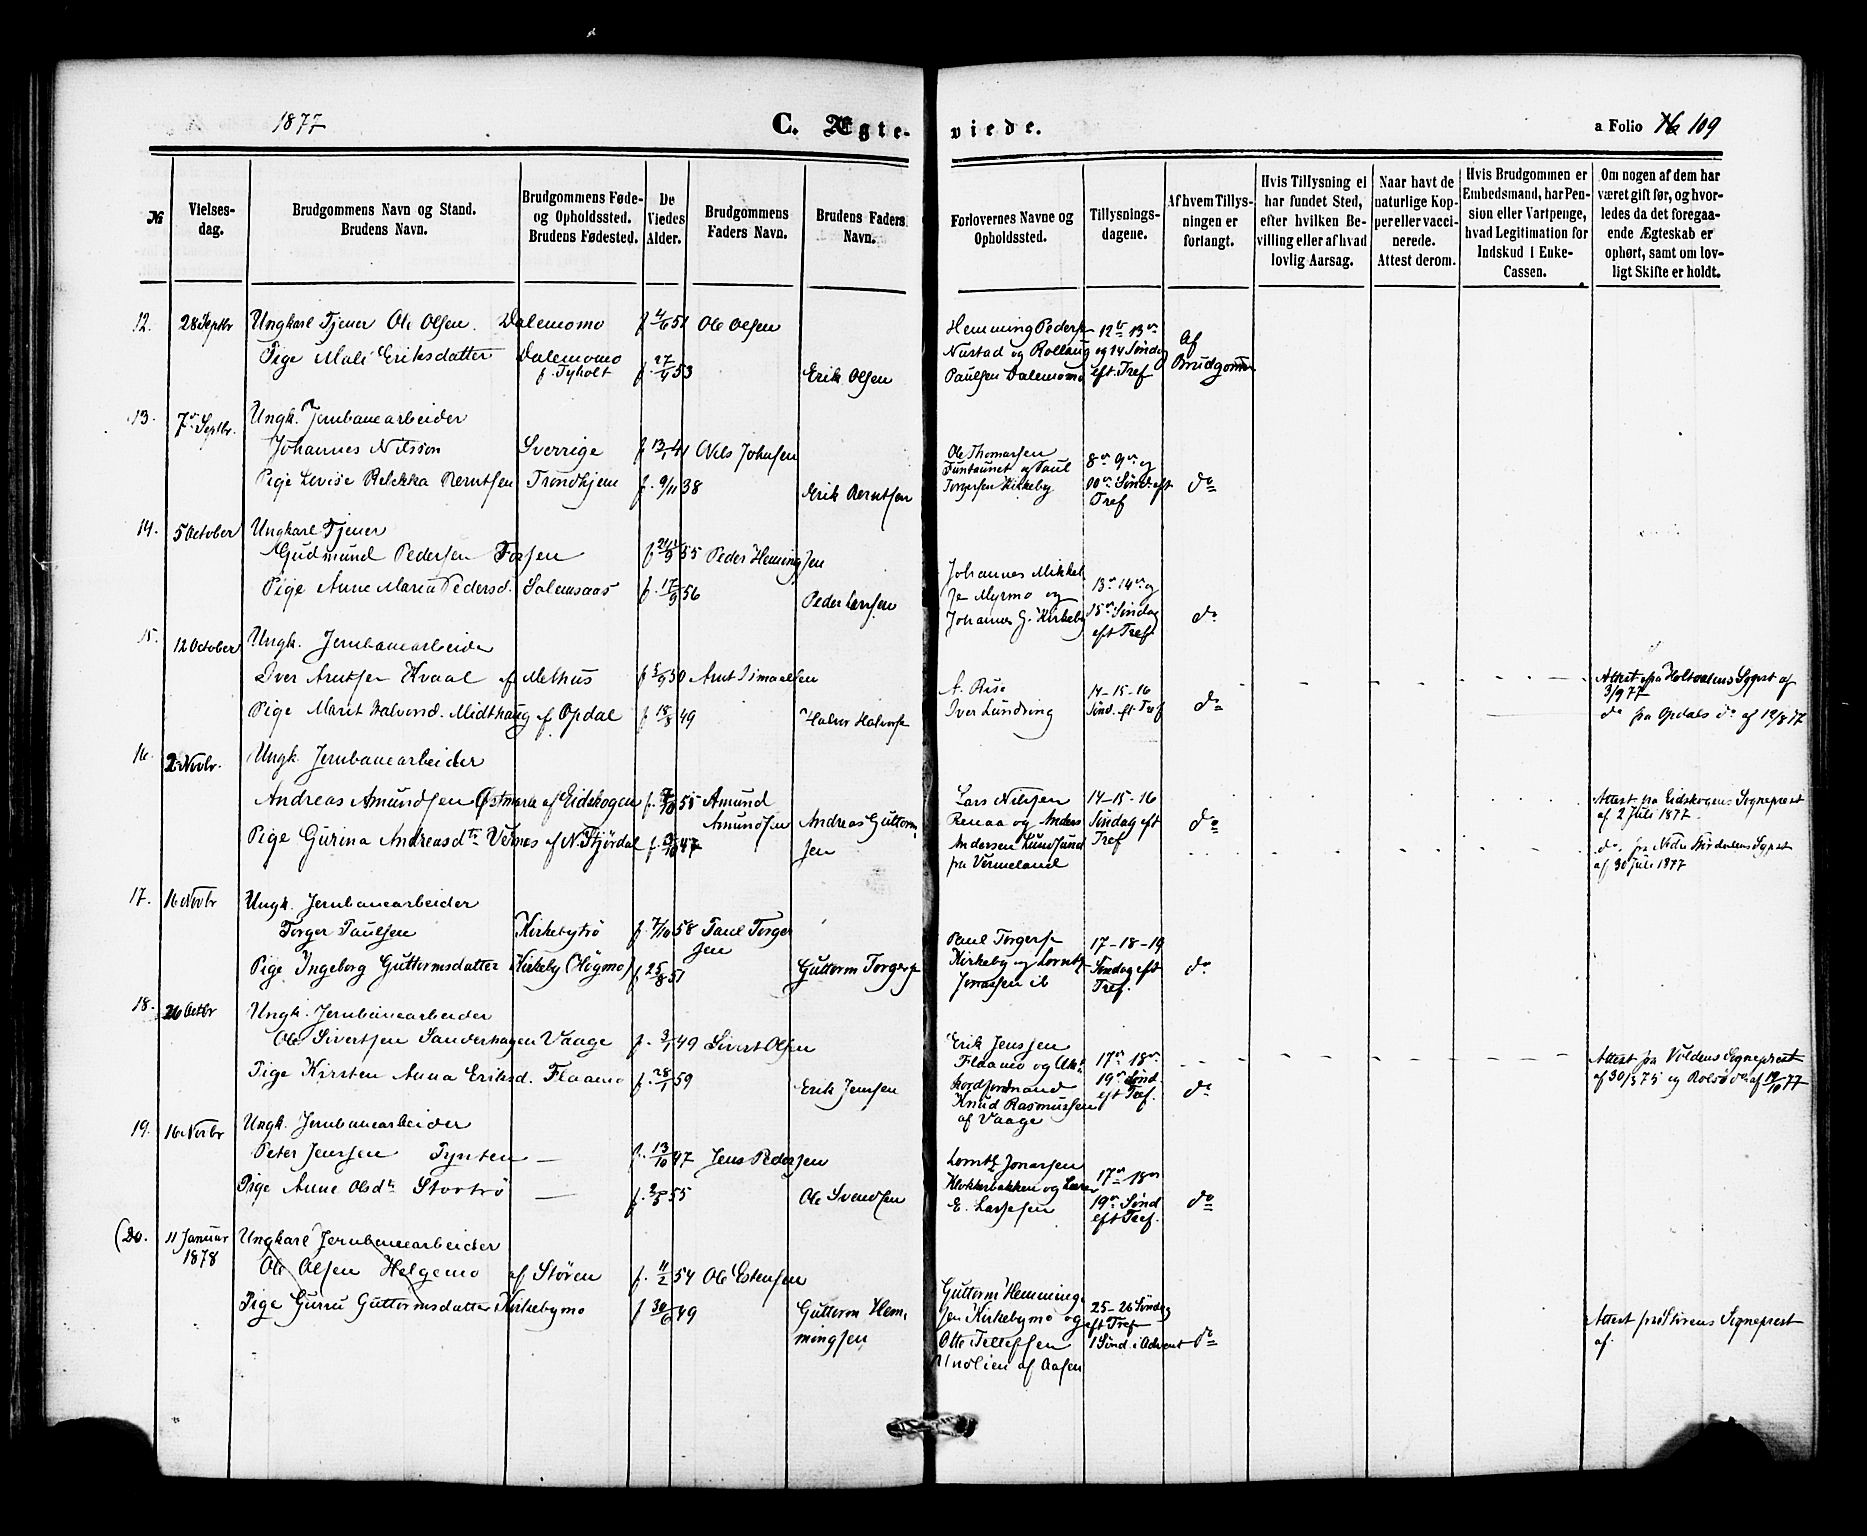 1877
C. Ægte-
viede.
a Folio 109
№
Vielses-
dag.
Brudgommens Navn og Stand.
Brudens Navn.
Brudgommens Føde-
og Opholdssted.
Brudens Fødested.
De
Viedes
Alder.
Brudgommens
Faders Navn.
Brudens Faders
Navn.
Forlovernes Navne og
Opholdssted.
Tillysnings-
dagene.
Af hvem Tillys-
ningen er
forlangt.
Hvis Tillysning ei
har fundet Sted,
efter hvilken Be-
villing eller af hvad
lovlig Aarsag.
Naar havt de
naturlige Kop-
per eller vacci-
nerede.
Attest derom.
Hvis Brudgommen er
Embedsmand, har Pen-
sion eller Vartpenge,
hvad Legitimation for
Indskud i Enke-
Cassen.
Om nogen af dem har
været gift før, og hvor-
ledes da det foregaa-
ende Ægteskab er
ophørt, samt om lov-
ligt Skifte er holdt.
12. 28 Septbr Ungkarl Tjener Ole Olsen Dalemomo f 4/6 51 Ole Olsen
Pige Mali Eriksdatter Dalemomo
f. Tyholt f. 27/9 53 Erik Olsen
Hemming Peders
Nustad og Rollaug
Paulsen Dalemomo
12te 13de
og 14 Søndag
eft Tref
Af
Brudgommen
13. 7de Septbr. Ungk. Jernbanearbeider
Johannes Nilsson Sverrige f 13/1 41 Nils Johnsen
Pige Lovise Rebekka Berntsen Trondhjem f. 9/11 38 Erik Berntsen
Ole Thomassen
Funtaunet og Paul
Torgersen Kirkeby
8de 9de og
10de Sønd. eft
Tref
do
14. 5 October Ungkarl Tjener
Gudmund Pedersen Forsen 55 Peder Hemingsen
Pige Anne Maria Pedersd. Solemsaas f. 17/9 56 Peder Larssen
Johannes Mikkel
sen Myrmo og
Johannes G. Kirkeby
13de 14de og
15de Søndag
eft Tref
do
15. 12 October Ungk. Jernbanearbeider
Iver Arntsen Kvaal af Melhus f 5/9 50 Arnt Ismaelsen
Pige Marit Halvorsd. Midthaug af Opdal f 18/8 49 Halvor Halvors
A. Rise
Iver Lundring
14-15-16
Sønd. eft Tref
do
Attest fra Holtaalens Sgprst af
3/9 77
do fra Opdals do af 12/8 77
16. 2 Novbr. Ungk. Jernbanearbeider
Andreas Amundsen Østmark af Eidskogen 55 Amund
Amundsen
Pige Gurina Andreasdtr Vernes af N. Stjørdal 47 Andreas Guttorm
sen
Lars Nilsen
Renaa og Anders
Andersen Lundsund
fra Vermeland
14-15-16
Søndag eft
Tref
do
Attest fra Eidskogens Sogneprest
af 2 Juli 1877.
do. fra Nedre Stjørdalens Sgprst
af 30 Juli 1877
17. 16 Novbr Ungk. Jernbanearbeider
Torger Paulsen Kirkebytrø f. 7/10 58 Paul Torger
sen
Pige Ingeborg Guttormsdatter Kirkeby (Høgmo) f 25/8 51 Guttorm Torgers
Paul Torgers
Kirkeby og Lorntz
Jonassen ib
17-18-19
Søndag eft
Tref.
do
18. 26 Octbr Ungk. Jernbanearbeider
Ole Sivertsen Sanderhagen Vaage f. 3/1 49 Sivert Olsen
Pige Kirsten Anna Eriksd. Flaamo f. 28/1 59 Erik Jenssen
Erik Jenssen
Flaamo og Ak-
kordformand
Knud Rasmussen
af Vaage
17de 18de
19de Sønd.
eft Tref.
do
Attest fra Voldens Sogneprest
af 30/3 75 og do af 12/10 77
19. 16 Novbr Ungk. Jernbanearbeider
Peter Jenssen Tynten — f. 13/10 47 Jens Pedersen
Pige Anne Olsdtr Stortrø — 55 Ole Svendsen
Lorntz Jonassen
Klokkerbakken og Lærer
E. Larssen
17de 18de
19de Sønd
eft Tref.
do
(20. 11 Januar
1878 Ungkarl Jernbanearbeider
Ole Olsen Helgemo af Støren f. 11/2 54 Ole Estensen
Pige Gurru Guttormsdatter Kirkebymo f 30/6 49 Guttorm Hem-
mingsen
Guttorm Hemming-
sen Kirkebymo og
Otte Tellefsen
Unolien af Aasen
25-26 Søndag
eft Tref
1 Sønd. i Advent
do
Attest fra Størens Sogneprest
af